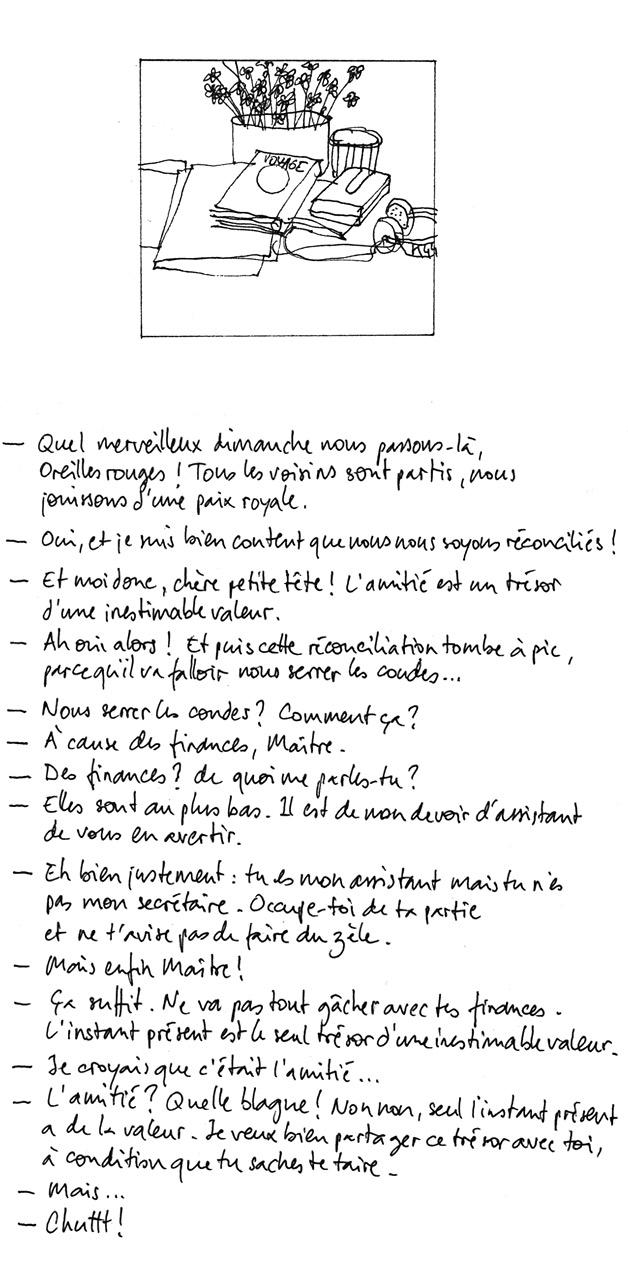 VOYAGE
— Quel merveilleux dimanche nous passons-là,
Oreilles rouges ! Tous les voisins sont partis, nous
jouissons d'une paix royale.
— Oui, et je suis bien content que nous nous soyons réconciliés !
— Et moi donc, chère petite tête ! L'amitié est un trésor
d'une inestimable valeur.
— Ah oui alors ! Et puis cette réconciliation tombe à pic,
parce qu'il va falloir nous serrer les coudes...
— Nous serrer les coudes ? Comment ça ?
— À cause des finances, Maître.
— Des finances ? de quoi me parles-tu ?
— Elles sont au plus bas. Il est de mon devoir d'assistant
de vous en avertir.
— Eh bien justement : tu es mon assistant mais tu n'es
pas mon secrétaire. Occupe-toi de ta partie
et ne t'avise pas de faire du zèle.
— Mais enfin Maître !
— Ça suffit. Ne va pas tout gâcher avec tes finances.
L'instant présent est le seul trésor d'une inestimable valeur.
— Je croyais que c'était l'amitié...
— L'amitié ? Quelle blague ! Non non, seul l'instant présent
a de la valeur. Je veux bien partager ce trésor avec toi,
à condition que tu saches te taire.
— Mais...
— Chuttt !